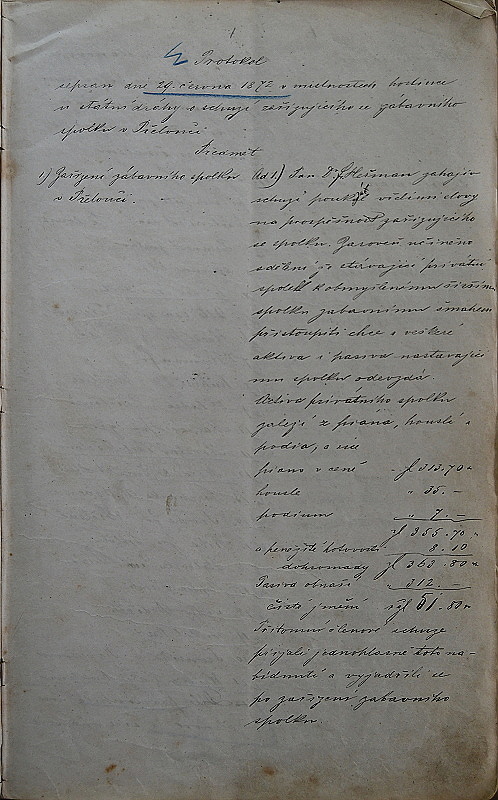 1
Protokol
sepsán dne 29. června 1872 v místnostech hostince
u státní dráhy o schůzi zařizujícího se zábavního
spolku v Přelouči
Předmět
1) Zařízení zábavního spolku
v Přelouči.
Ad 1.) Pan Dr. Heřman zahajuje
schůzi poukázav vřelými slovy
na prospěšnost zařizujícího
se spolku. Zároveň učiněno
sdělení že stávající privátní
spolek k obmýšlenému širšímu
spolku zábavnímu směhem
přistoupiti chce a veškeré
aktiva i pasiva nastávající-
mu spolku odevzdá.
Activa privátního spolku
záleží z piána, houslí a
podia, a sice
piano v ceně zl 313.70 x
housle " 35. –
podium " 7. –
zl 355.70 x
a peněžité hotovosti 8.10
dohromady zl 363.80 x
Pasiva obnáší " 312. –
čisté jmění zl 51.80 x
Přítomní členové schůze
přijali jednohlasně toto na-
bídnutí a vyjádřili se
po zařízení zábavního
spolku.